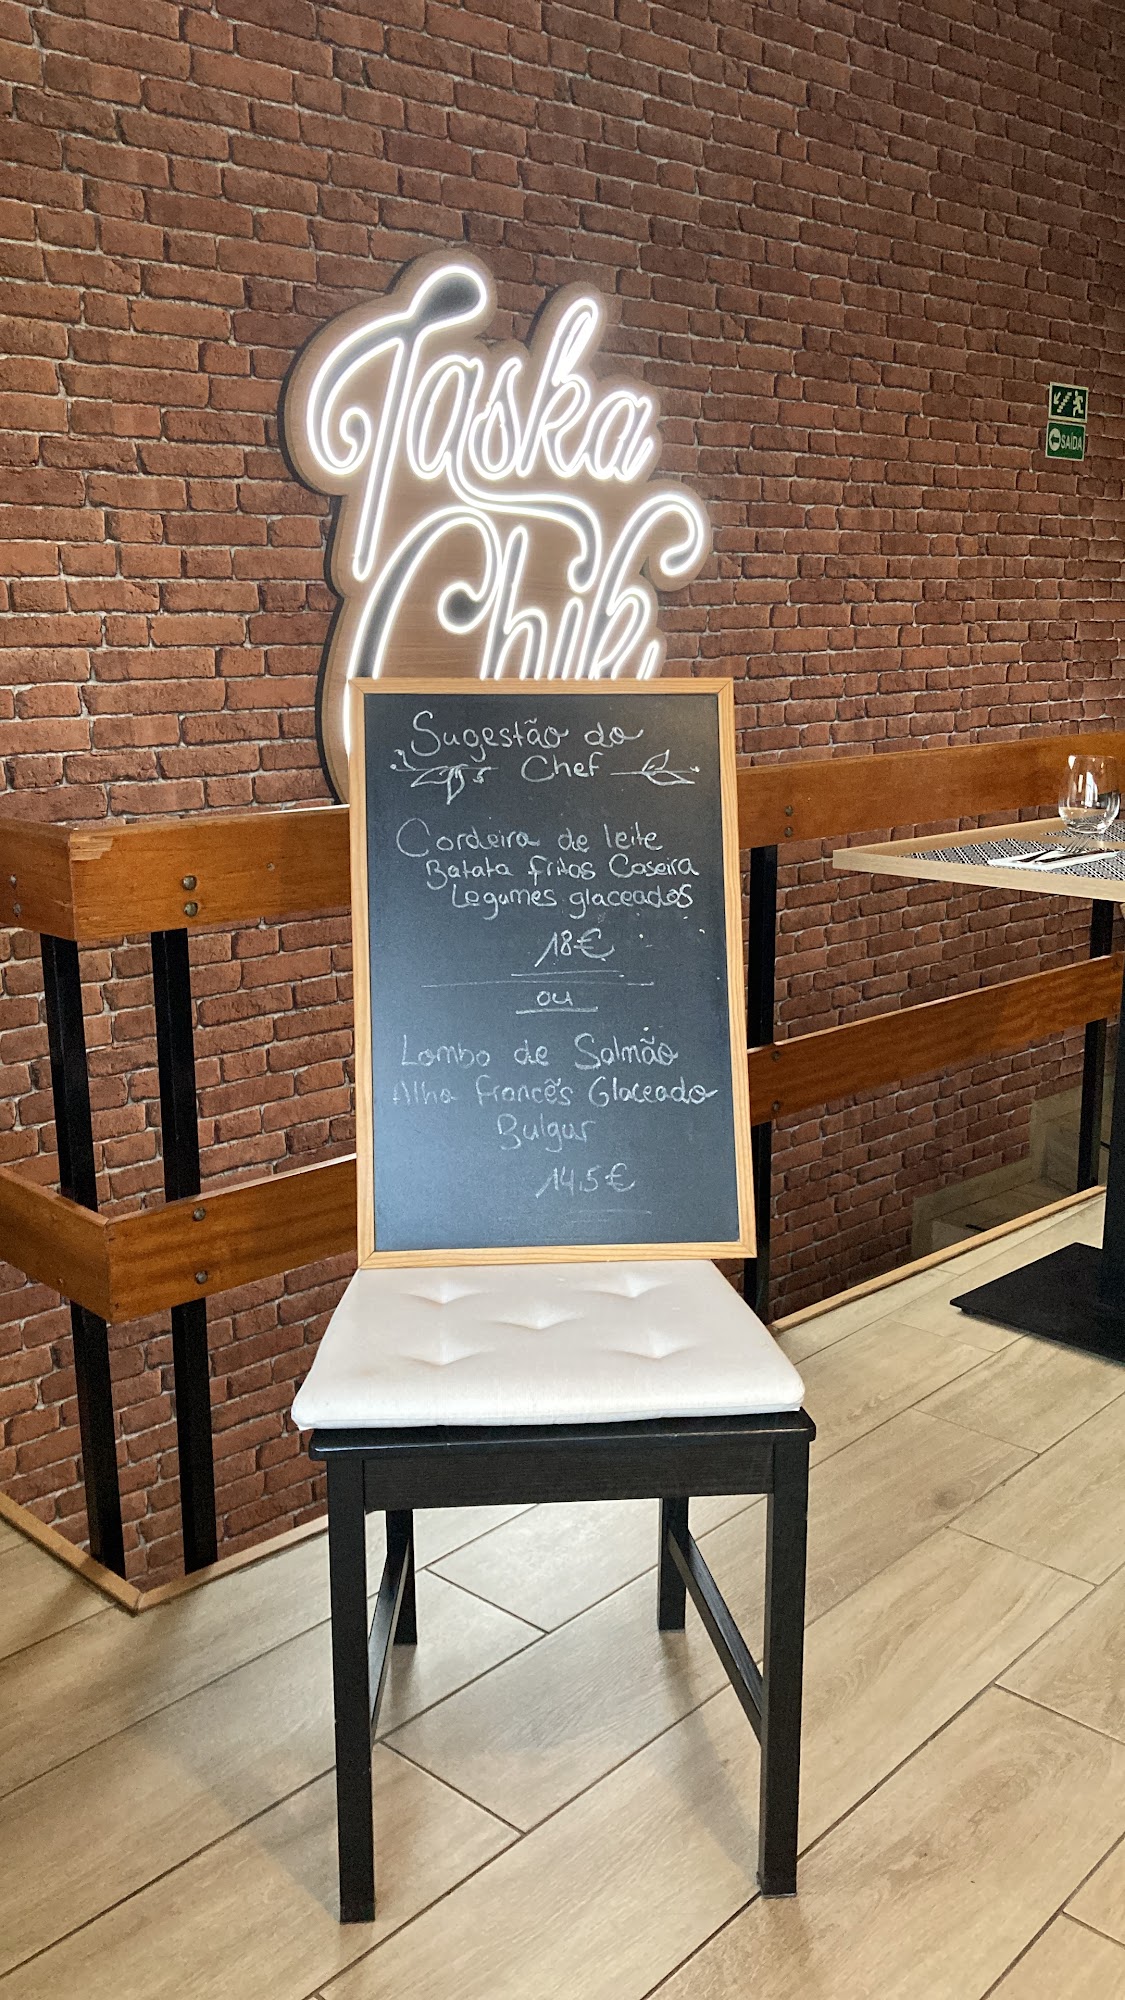 Taska
Chik
SAÍDA
Sugestão do
Chef
Cordeira de leite
Batata fritas Caseira
Legumes glaceados
18€
ou
Lombo de Salmão
Alho Francês Glaceado
Bulgur
14,5€